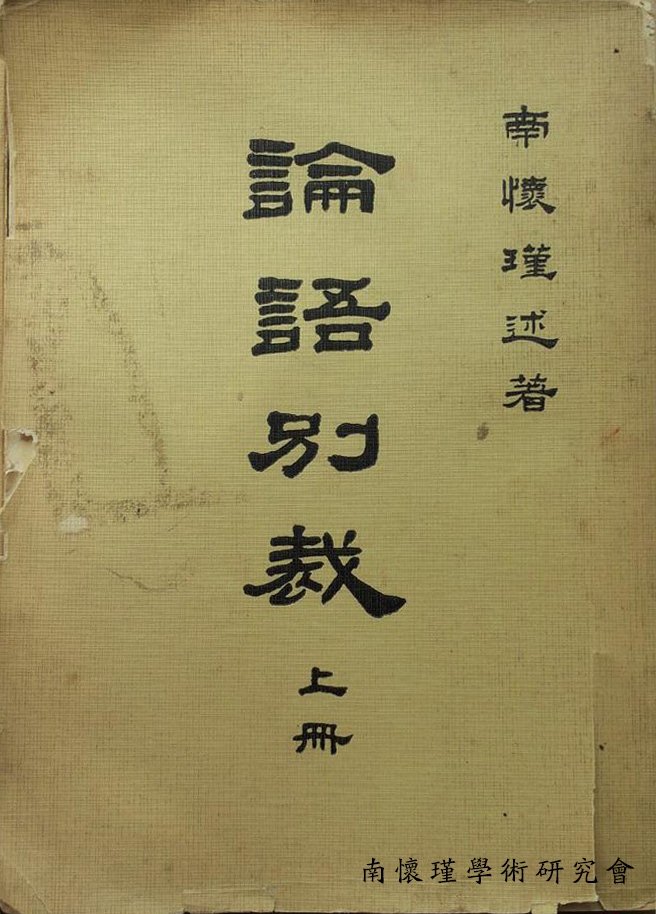 南懷瑾述著
論語別裁
上冊
南懷瑾學術研究會